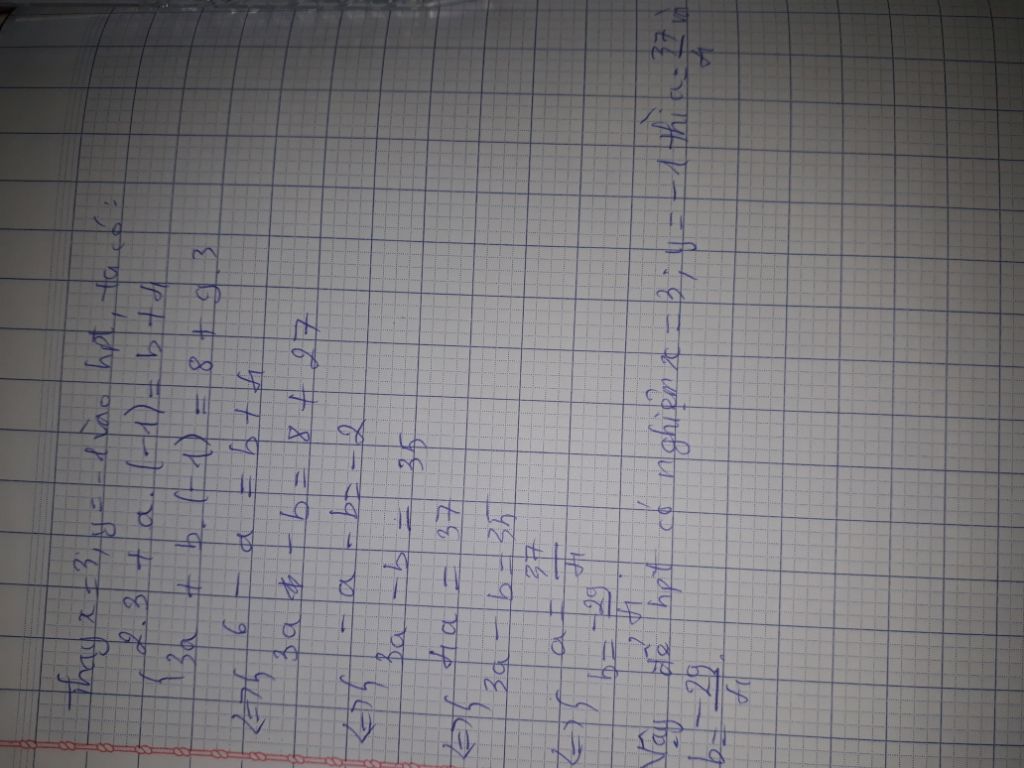 Thay x = 3, y = -1 vào hpt, ta có:
{ 2.3 + a.(-1) = b + 4
{ 3a + b.(-1) = 8 + 9.3
<=> { 6 - a = b + 4
3a - b = 8 + 27
<=> { - a - b = -2
3a - b = 35
<=> { 4a = 37
3a - b = 35
<=> { a = 37/4
b = -29/4
Vậy để hpt có nghiệm x = 3; y = -1 thì a = 37/4
b = -29/4.